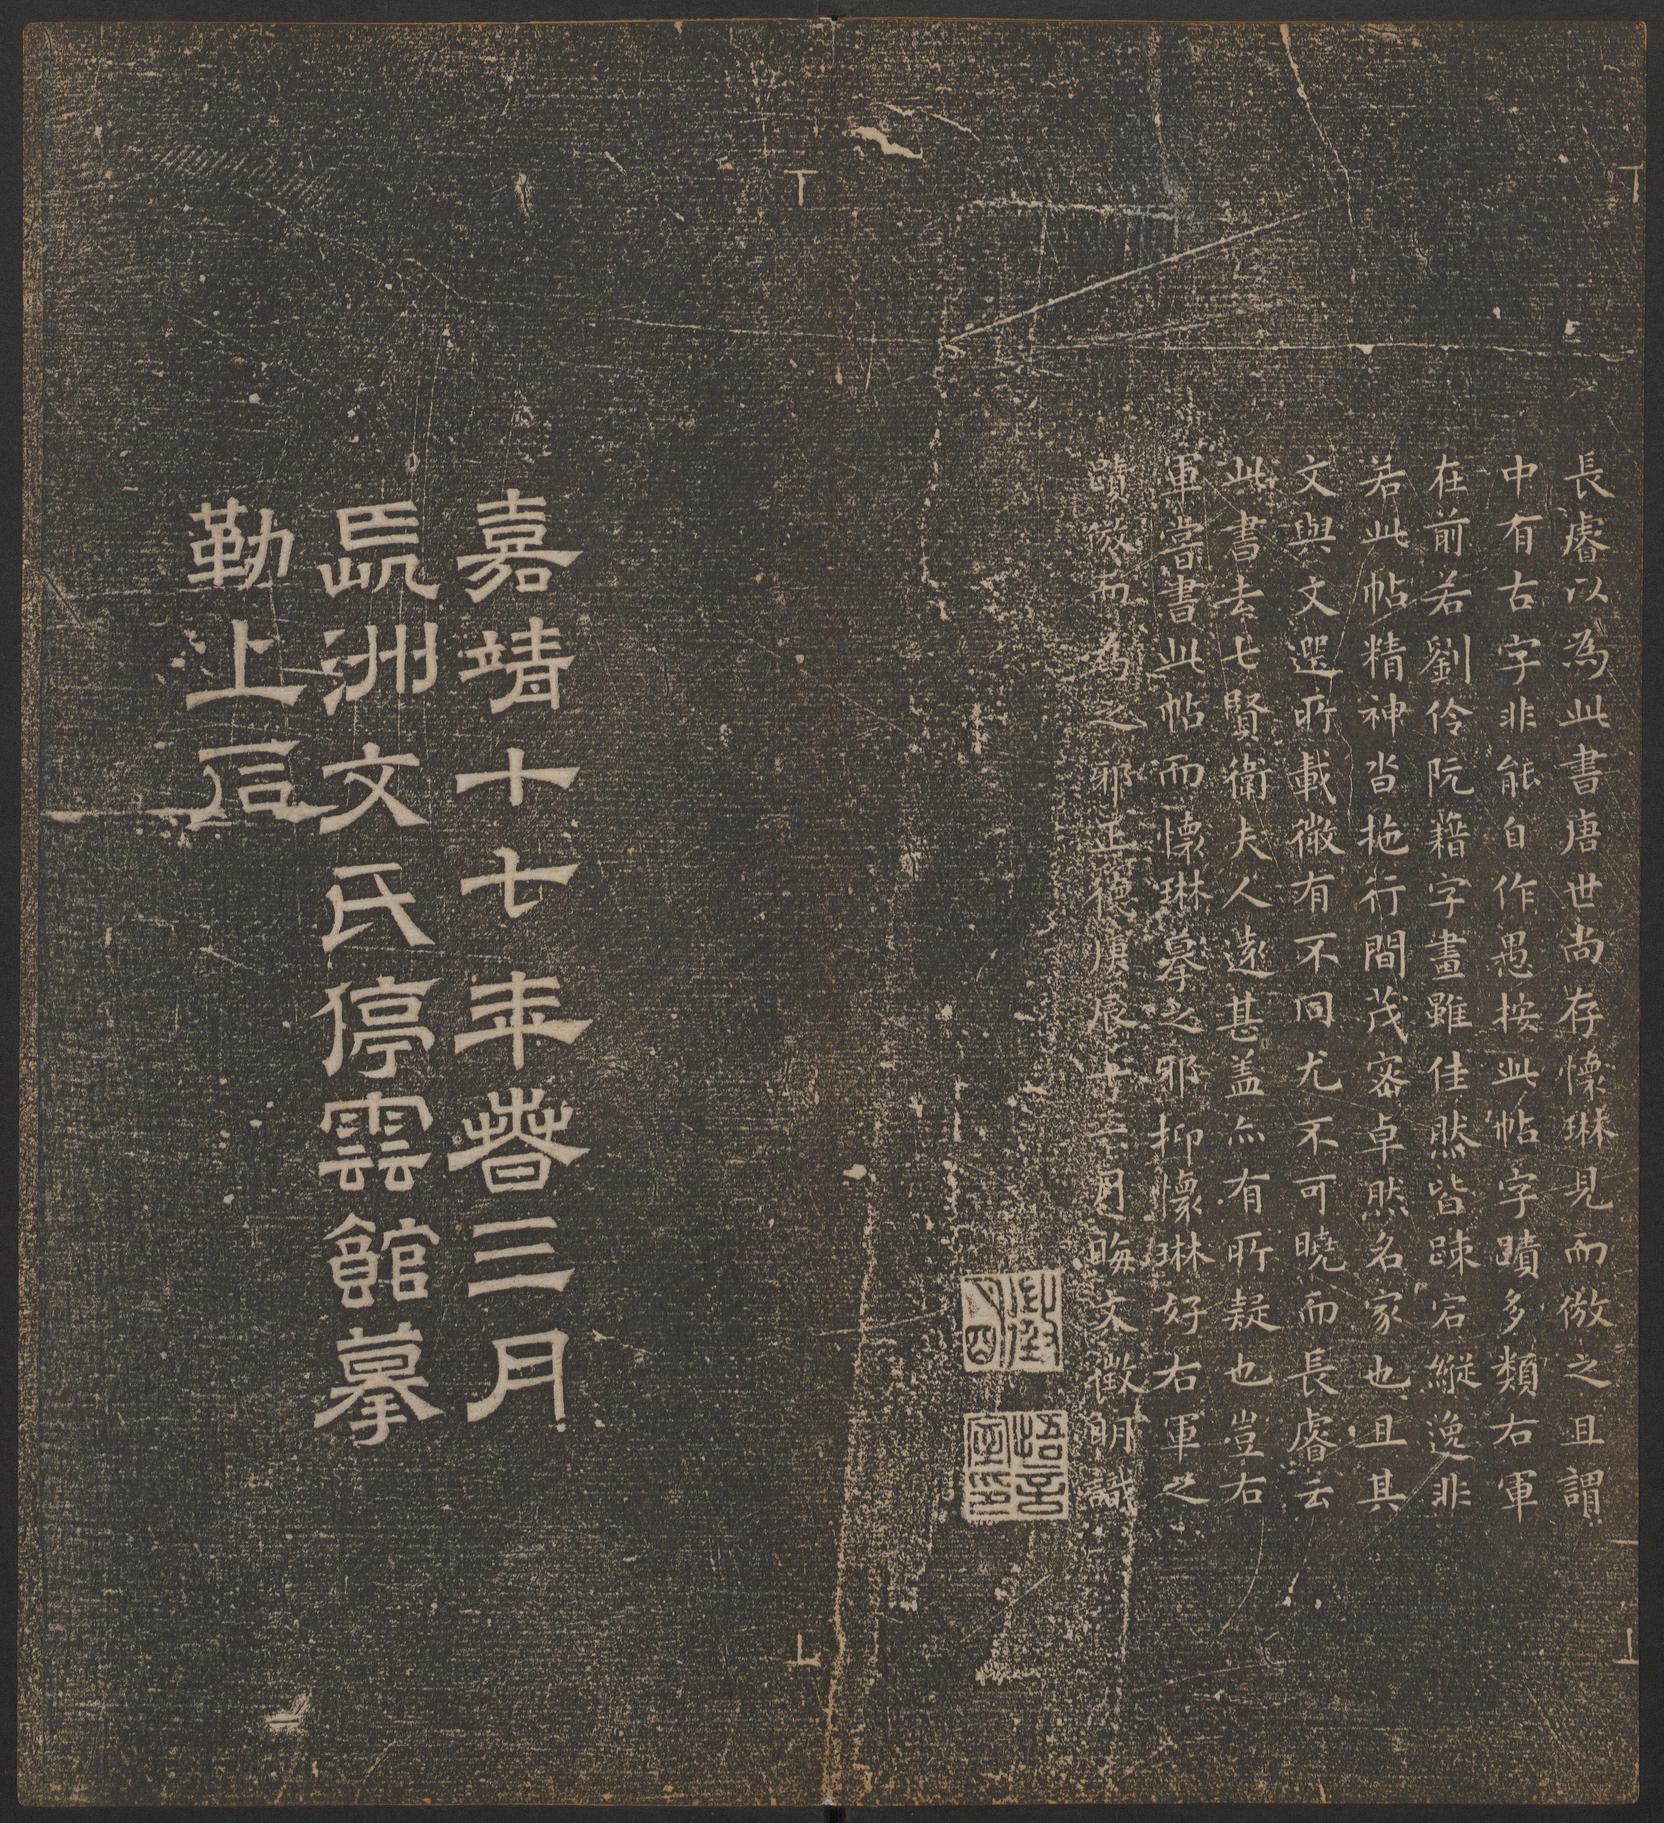 長睿以為此書唐世尚存懷琳見而倣之且謂
中有古字非能自作愚按此帖字蹟多類右軍
在前若劉伶阮藉字畫雖佳然皆疎宕縱逸非
若此帖精神沓拖行間茂密卓然名家也且其
文與文選所載微有不同尤不可曉而長睿云
此書去七賢衛夫人遠甚盖亦有所疑也豈右
軍嘗書此帖而懷琳摹之邪抑懷琳好右軍之
蹟倣而為之邪正德庚辰十二月晦文徵明識
悟言室印
嘉靖十七年春三月
長洲文氏停雲館摹
勒上石